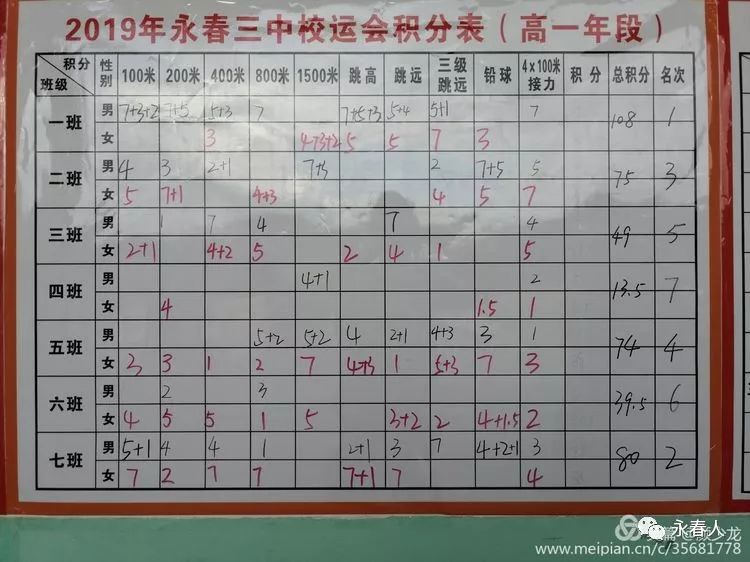 2019年永春三中校运会积分表（高一年段）
积分 班级 性别 100米 200米 400米 800米 1500米 跳高 跳远 三级跳远 铅球 4×100米接力 积分 总积分 名次
一班 男 7+3+2 7+5 5+3 7 7+5+3 5+4 5+1 7 108 1
女 3 4+3+2 5 5 7 3
二班 男 4 3 2+1 7+3 2 7+5 5 75 3
女 5 7+1 4+3 4 5 7
三班 男 1 7 4 7 4 49 5
女 2+1 4+2 5 2 4 1 5
四班 男 4+1 2 13.5 7
女 4 1.5 1
五班 男 5+2 5+2 4 2+1 4+3 3 1 74 4
女 3 3 1 2 7 4+3 1 5+3 7 3
六班 男 2 3 39.5 6
女 4 5 5 1 5 3+2 2 4+1.5 2
七班 男 5+1 4 4 1 2+1 3 7 4+2+1 3 80 2
女 7 2 7 7 7+1 7 4
永春人
www.meipian.cn/c/35681778